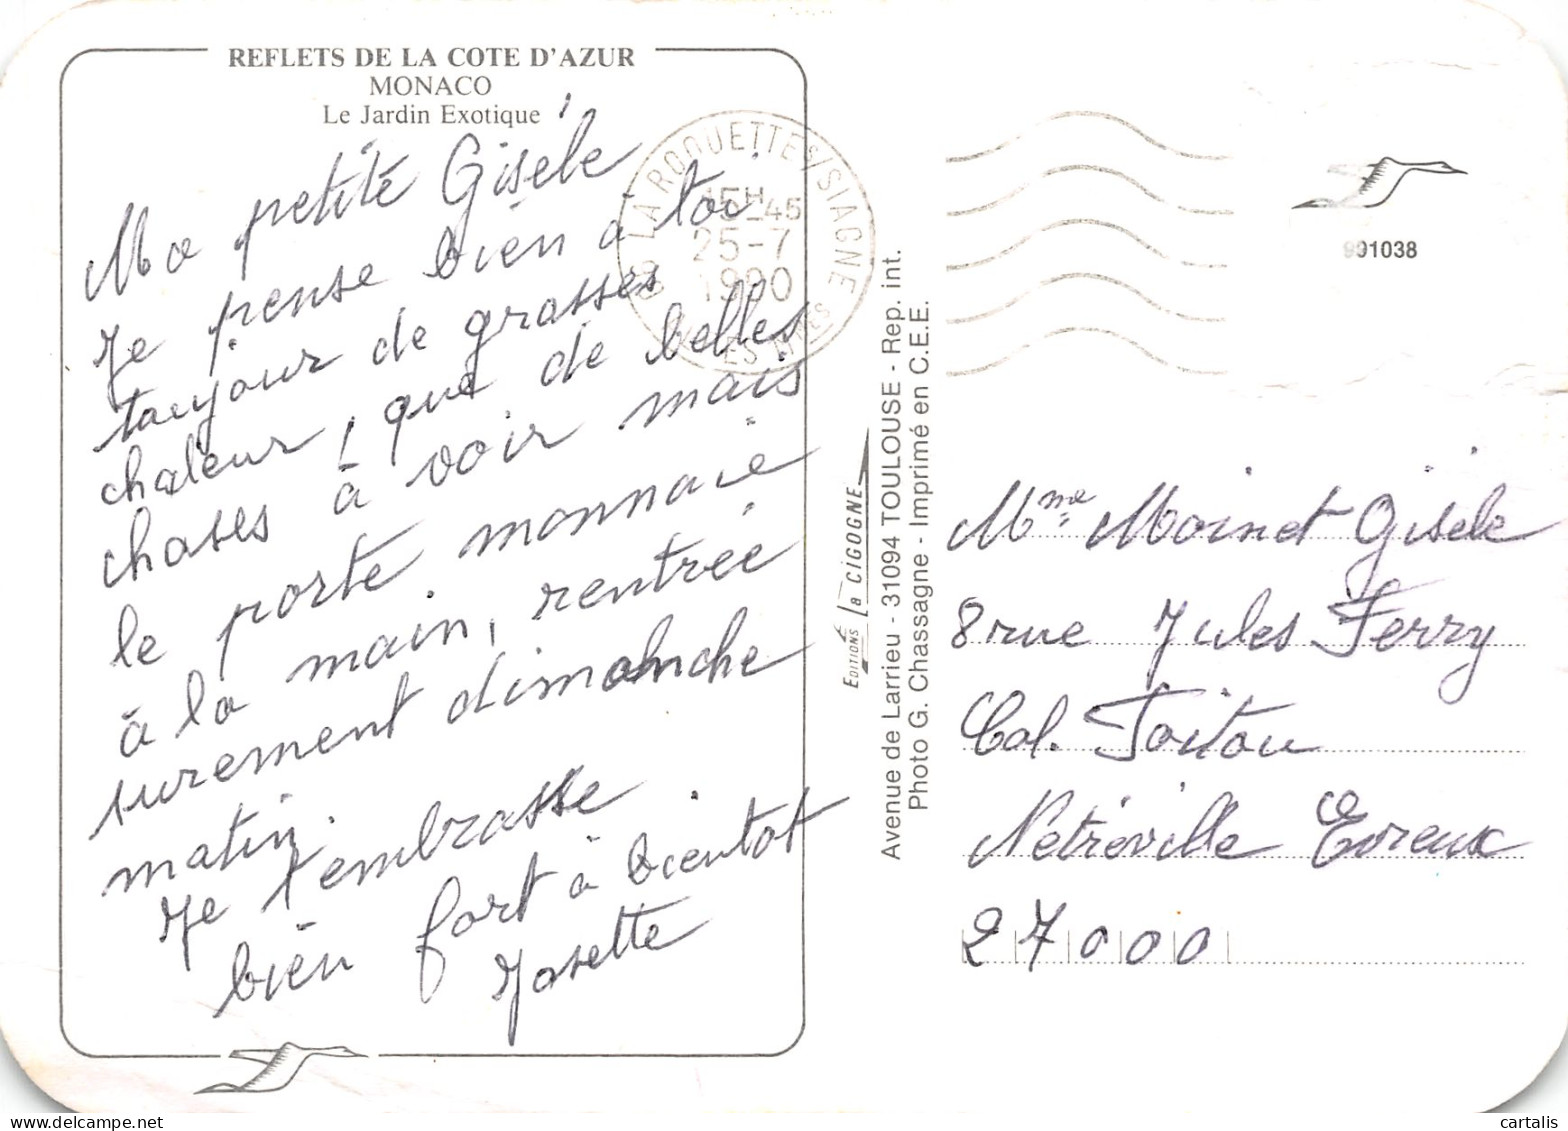 REFLETS DE LA COTE D'AZUR
MONACO
Le Jardin Exotique
Ma petite Gisèle
Je pense bien à toi
toujour de grosses
chaleur, que de belles
choses à voir mais
le porte monnaie
à la main, rentrée
surement dimanche
matin.
Je t'embrasse
bien fort à bientot
Josette
06 LA ROQUETTE S/SIAGNE
15H45
25-7
1990
ALPES MMES
EDITIONS La CIGOGNE
Avenue de Larrieu - 31094 TOULOUSE - Rep. int.
Photo G. Chassagne - Imprimé en C.E.E.
991038
Mme Moinet Gisèle
8 rue Jules Ferry
Col. Poitou
Nétréville Evreux
27000
cartalis